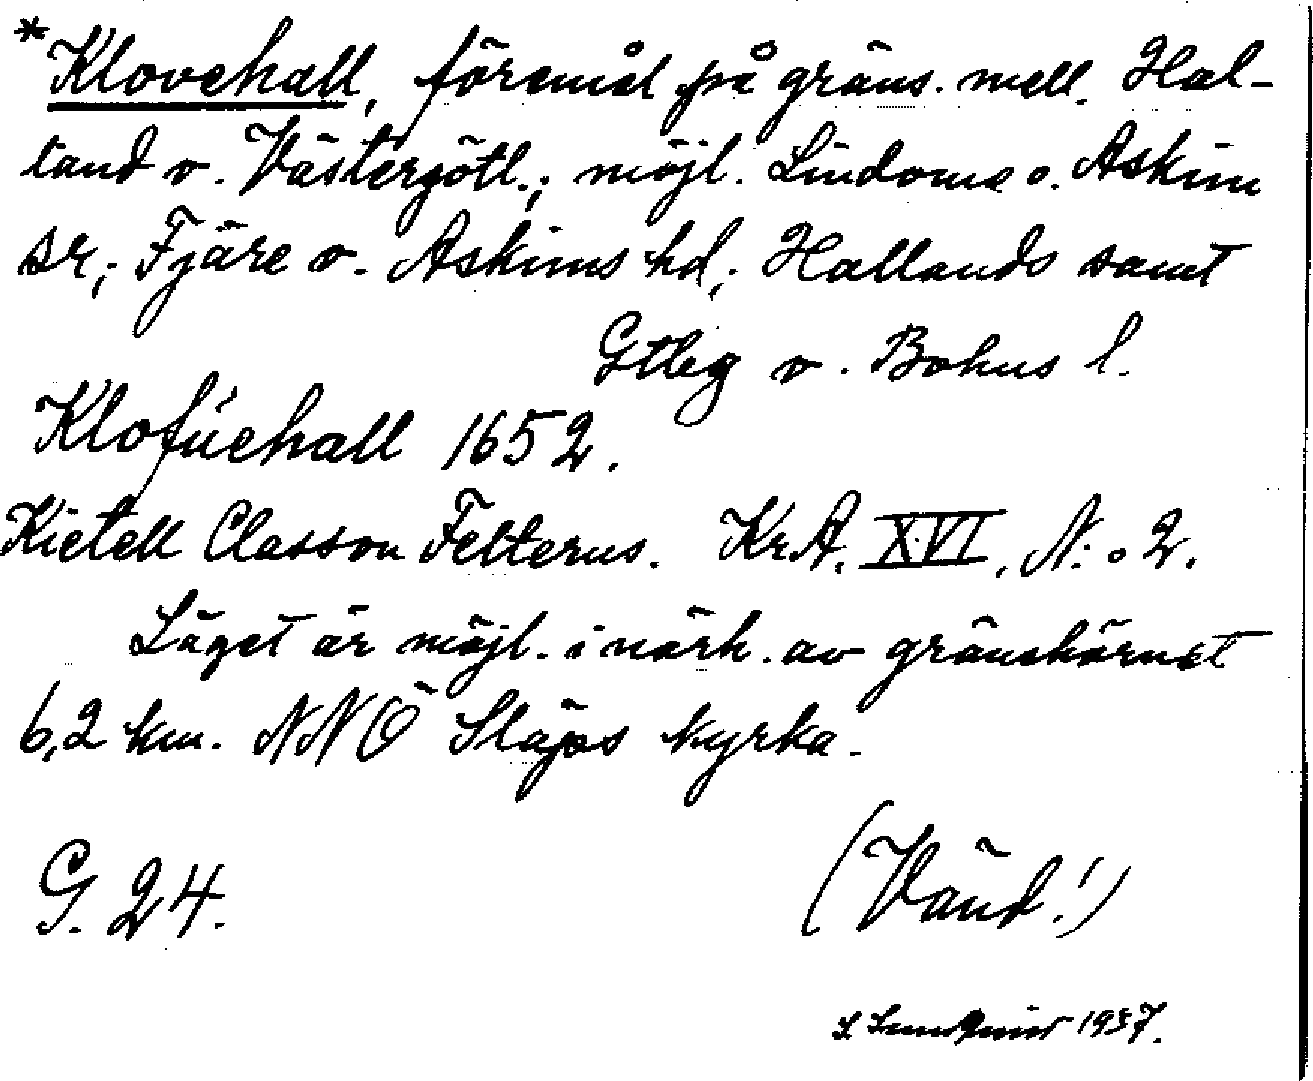 *Klovehall, föremål på gräns. mell. Hal-
land o. Västergötl.; möjl. Lindome o. Askim
sr; Fjäre o. Askims hd; Hallands samt
Gtbg o. Bohus l.
Klofúehall 1652.
Kietell Classon Felterus. KrA. XVI, N:o 2.
Läget är möjl. i närh. av gränshörnet
6,2 km. NNÖ Släps kyrka.
G. 24.
(Vänd!)
1937.